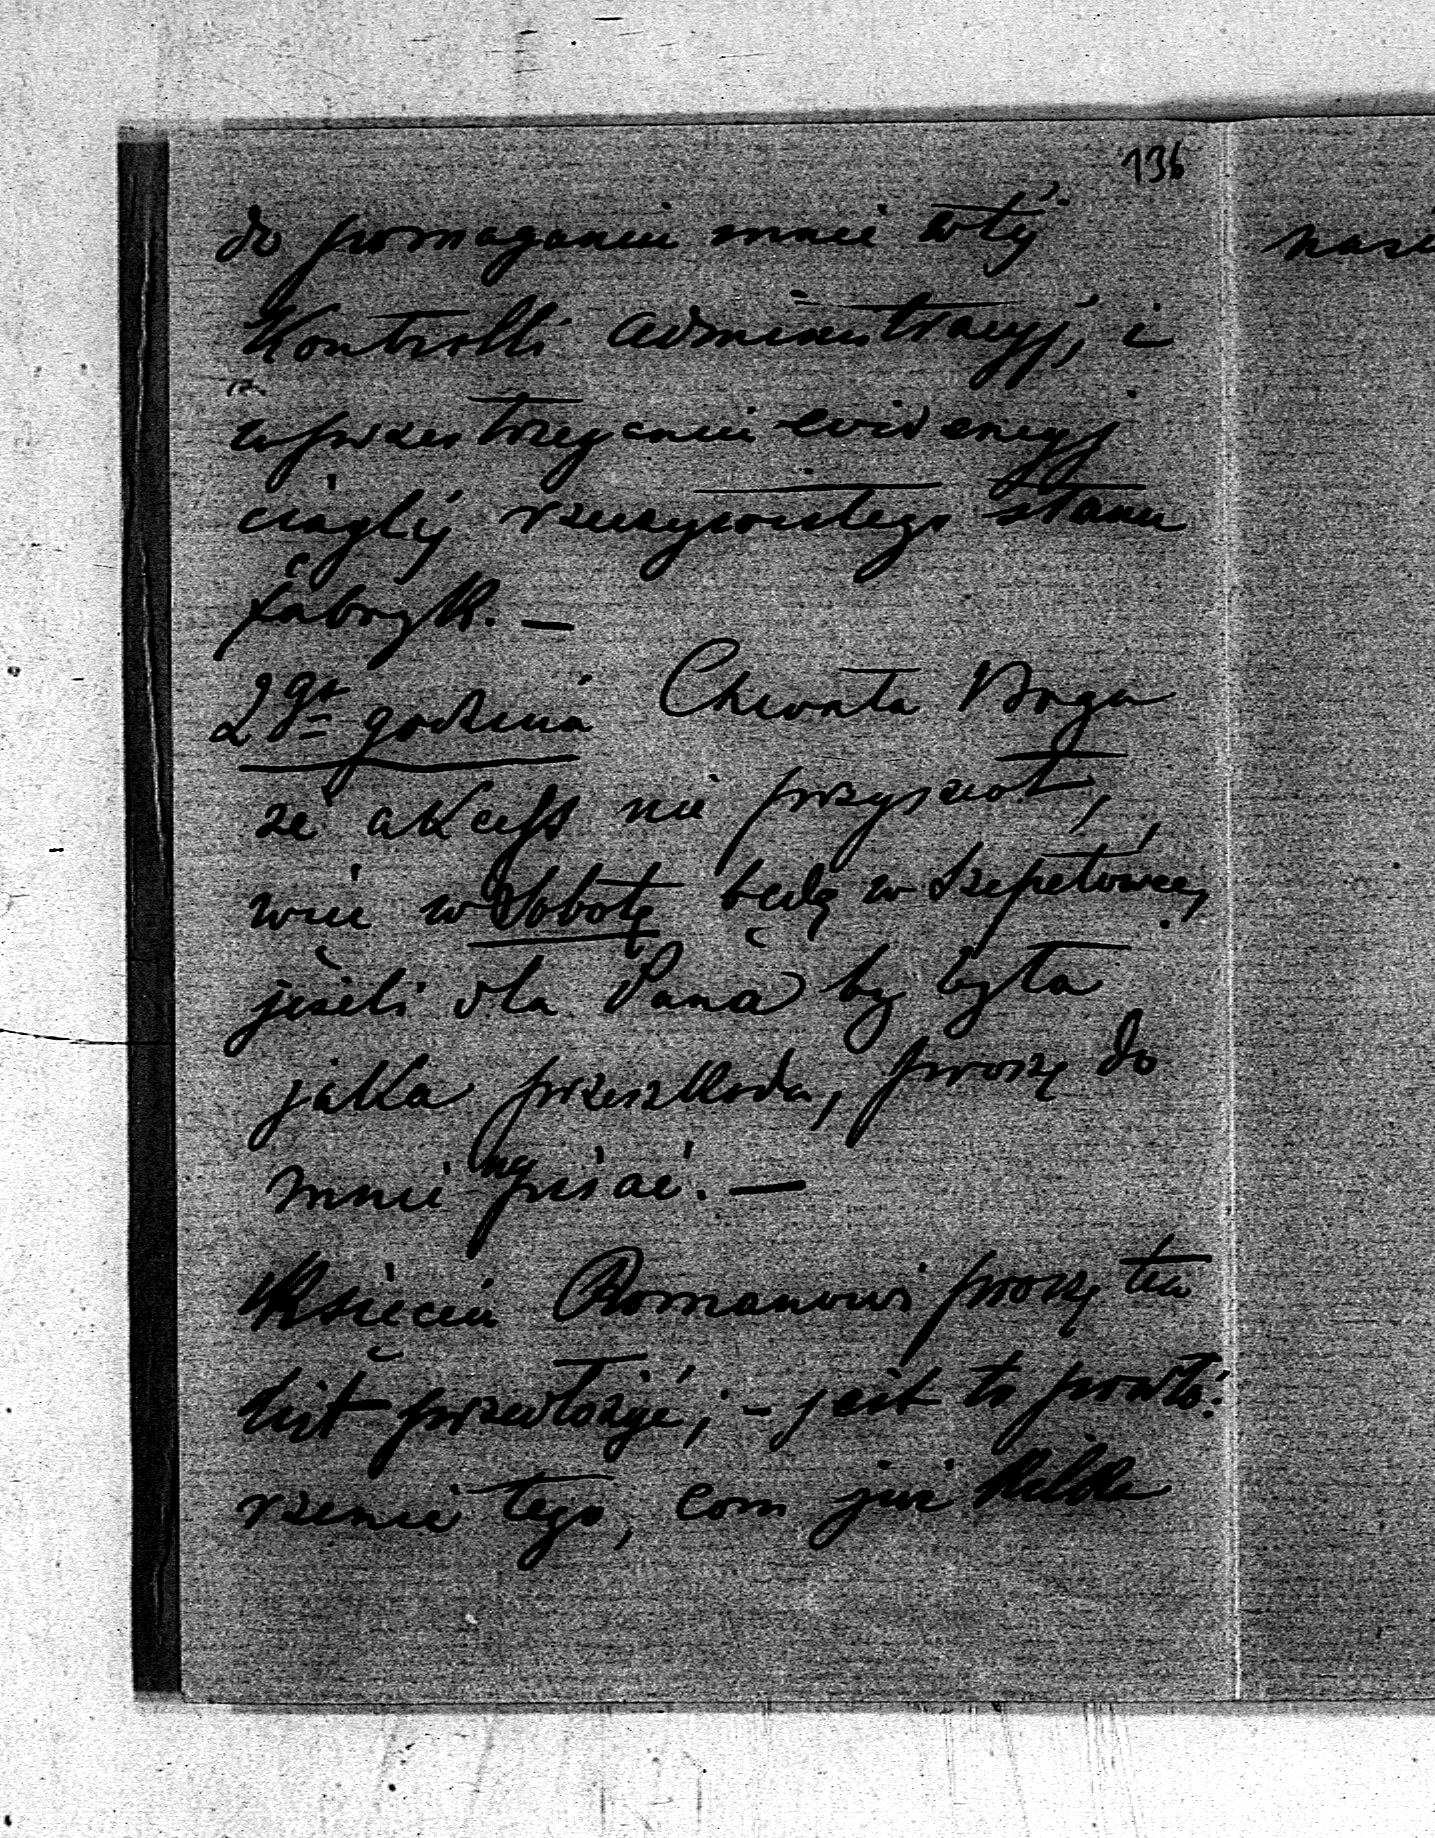 136
do pomaganiu mnie w téj
Kontrolli administracyj, i
w przestrzeganiu evidencyj
ciągłéj rzeczywistego stanu
fabryk. —
2ga godzina Chwała Bogu
że akcess nie przyszedł,
więc w Sobotę będę w Szepetówce,
jeżeli dla Pana by była
jaka przeszkoda, proszę do
mnie napisać. —
Księciu Romanowi proszę ten
list przedłożyć, - jest to powtó:
rzenie tego, com już kilka